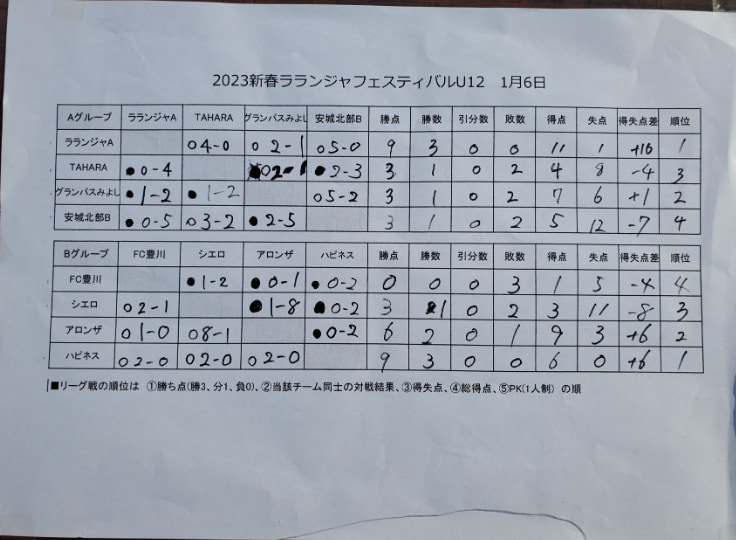 2023新春ラランジャフェスティバルU12 1月6日
Aグループ ラランジャA TAHARA グランパスみよし 安城北部B 勝点 勝数 引分数 敗数 得点 失点 得失点差 順位
ラランジャA ○4-0 ○2-1 ○5-0 9 3 0 0 11 1 +10 1
TAHARA ●0-4 ○2-1 ●2-3 3 1 0 2 4 8 -4 3
グランパスみよし ●1-2 ●1-2 ○5-2 3 1 0 2 7 6 +1 2
安城北部B ●0-5 ○3-2 ●2-5 3 1 0 2 5 12 -7 4
Bグループ FC豊川 シエロ アロンザ ハピネス 勝点 勝数 引分数 敗数 得点 失点 得失点差 順位
FC豊川 ●1-2 ●0-1 ●0-2 0 0 0 3 1 5 -4 4
シエロ ○2-1 ●1-8 ●0-2 3 1 0 2 3 11 -8 3
アロンザ ○1-0 ○8-1 ●0-2 6 2 0 1 9 3 +6 2
ハピネス ○2-0 ○2-0 ○2-0 9 3 0 0 6 0 +6 1
■リーグ戦の順位は ①勝ち点(勝3、分1、負0)、②当該チーム同士の対戦結果、③得失点、④総得点、⑤PK(1人制) の順